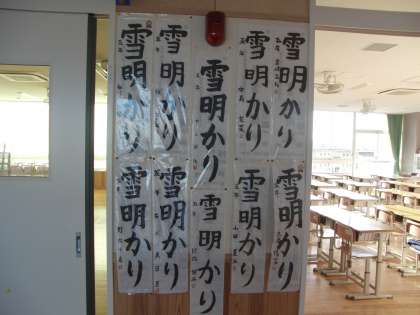 雪明かり
雪明かり
雪明かり
雪明かり
雪明かり
雪明かり
雪明かり
雪明かり
雪明かり
雪明かり